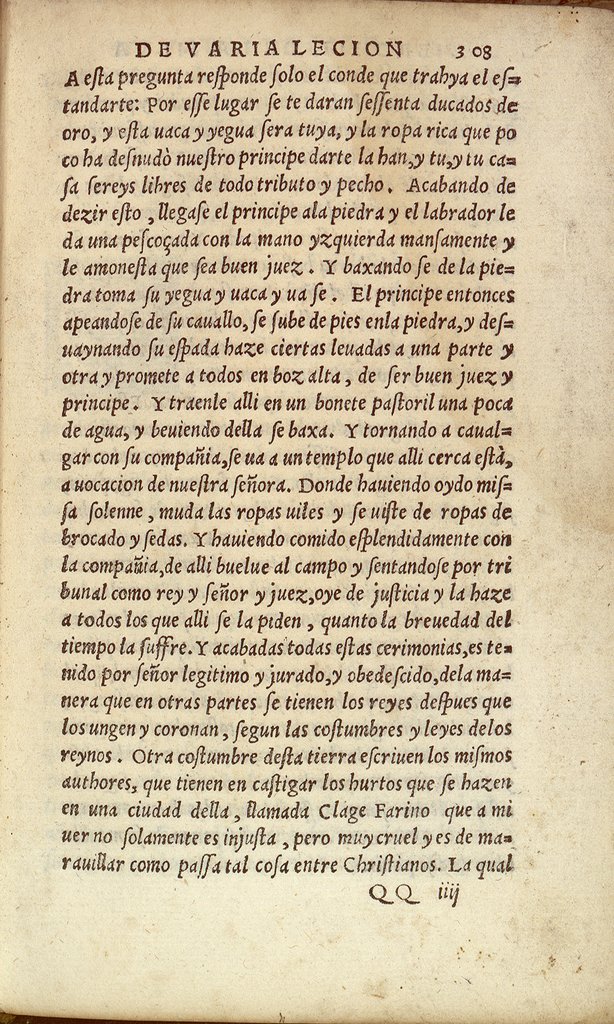 DE VARIA LECION 308
A esta pregunta responde solo el conde que trahya el es=
tandarte: Por esse lugar se te daran sessenta ducados de
oro, y esta uaca y yegua sera tuya, y la ropa rica que po
co ha desnudò nuestro principe darte la han, y tu, y tu ca=
sa sereys libres de todo tributo y pecho. Acabando de
dezir esto, llegase el principe ala piedra y el labrador le
da una pescoçada con la mano yzquierda mansamente y
le amonesta que sea buen juez. Y baxando se de la pie=
dra toma su yegua y uaca y ua se. El principe entonces
apeandose de su cauallo, se sube de pies enla piedra, y des=
uaynando su espada haze ciertas leuadas a una parte y
otra y promete a todos en boz alta, de ser buen juez y
principe. Y traenle alli en un bonete pastoril una poca
de agua, y beuiendo della se baxa. Y tornando a caual=
gar con su compañia, se ua a un templo que alli cerca està,
a uocacion de nuestra señora. Donde hauiendo oydo mis=
sa solenne, muda las ropas uiles y se uiste de ropas de
brocado y sedas. Y hauiendo comido esplendidamente con
la compañia, de alli buelue al campo y sentandose por tri
bunal como rey y señor y juez, oye de justicia y la haze
a todos los que alli se la piden, quanto la breuedad del
tiempo la suffre. Y acabadas todas estas cerimonias, es te=
nido por señor legitimo y jurado, y obedescido, dela ma=
nera que en otras partes se tienen los reyes despues que
los ungen y coronan, segun las costumbres y leyes delos
reynos. Otra costumbre desta tierra escriuen los mismos
authores, que tienen en castigar los hurtos que se hazen
en una ciudad della, llamada Clage Farino que a mi
uer no solamente es injusta, pero muy cruel y es de ma=
rauillar como passa tal cosa entre Christianos. La qual
QQ iiij